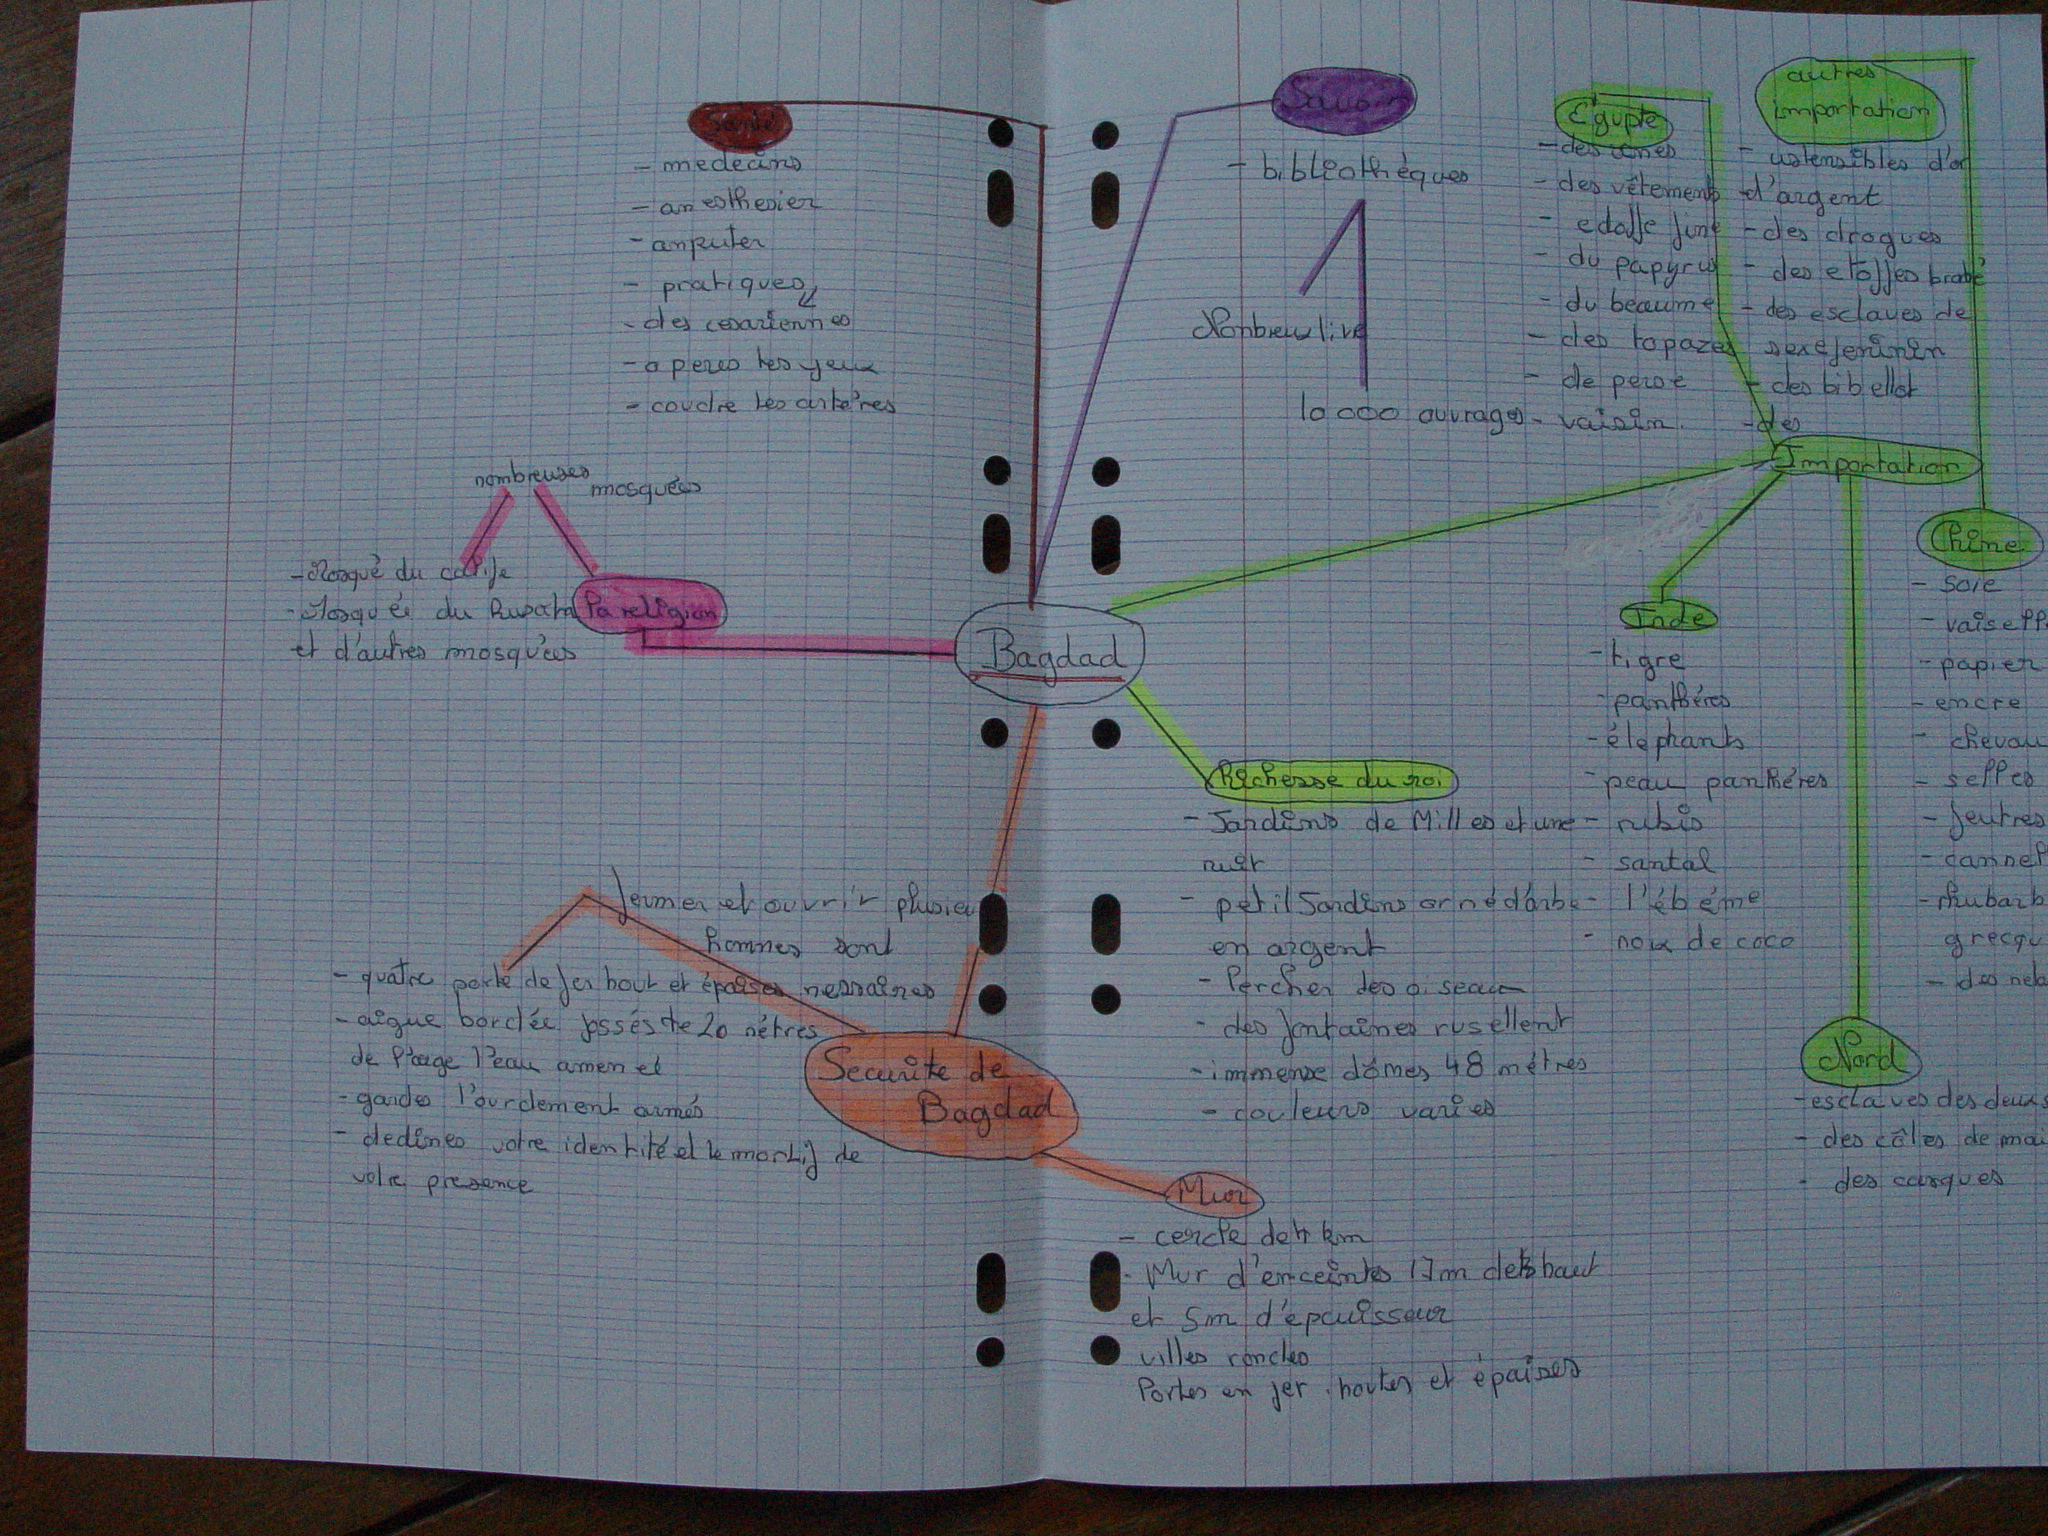 Santé
- medecins
- anesthesier
- amputer
- pratiques
- des cesariennes
- operes les yeux
- coudre les artères
Savoir
- bibliothèques
Nonbreu livre
10 000 ouvrages
Egypte
- des ânes
- des vêtements
du papyrus
- du beaume
- des topazes
- de perse
- vaisin
autres
importation
- ustensibles d'or
- d'argent
- des drogues
- des etoffes brodé
- des esclaves de
sexe feminin
- des bibellot
- des
Importation
nombreuses
mosquées
- Mosqué du calife
- Mosquée du Rusafa
et d'autres mosquées
la religion
Bagdad
Chine
- soie
- vaisell
- papier
- encre
- chevau
- selles
- feutres
- cannel
- rhubarb
grecqu
Inde
- tigre
- panthéres
- éléphants
- peau panthéres
- rubis
- santal
- l'ébéme
- noix de coco
Richesse du roi
- Jardins de Milles et une
nuit
- petit Jardins orné d'arbe
en argent
- Percher des oiseau
- des fontaines rusellent
- immense dômes 48 métres
- couleurs varies
fermer et ouvrir plusieu
hommes sont
nessaires
- quatre porte de fer hout et épaises
- aigue bordée fossés de 20 métres
de l'arge l'eau amen et
- gardes l'ourdement armés
- declines votre identité et le mortif de
votre presence
Securite de
Bagdad
Nord
- esclaves des deux s
- des côtes de mai
- des casques
Mur
- cercle de 4 km
- Mur d'enceintes 17m de haut
et 5m d'epauisseur
villes rondes
Portes en fer hautes et épaises